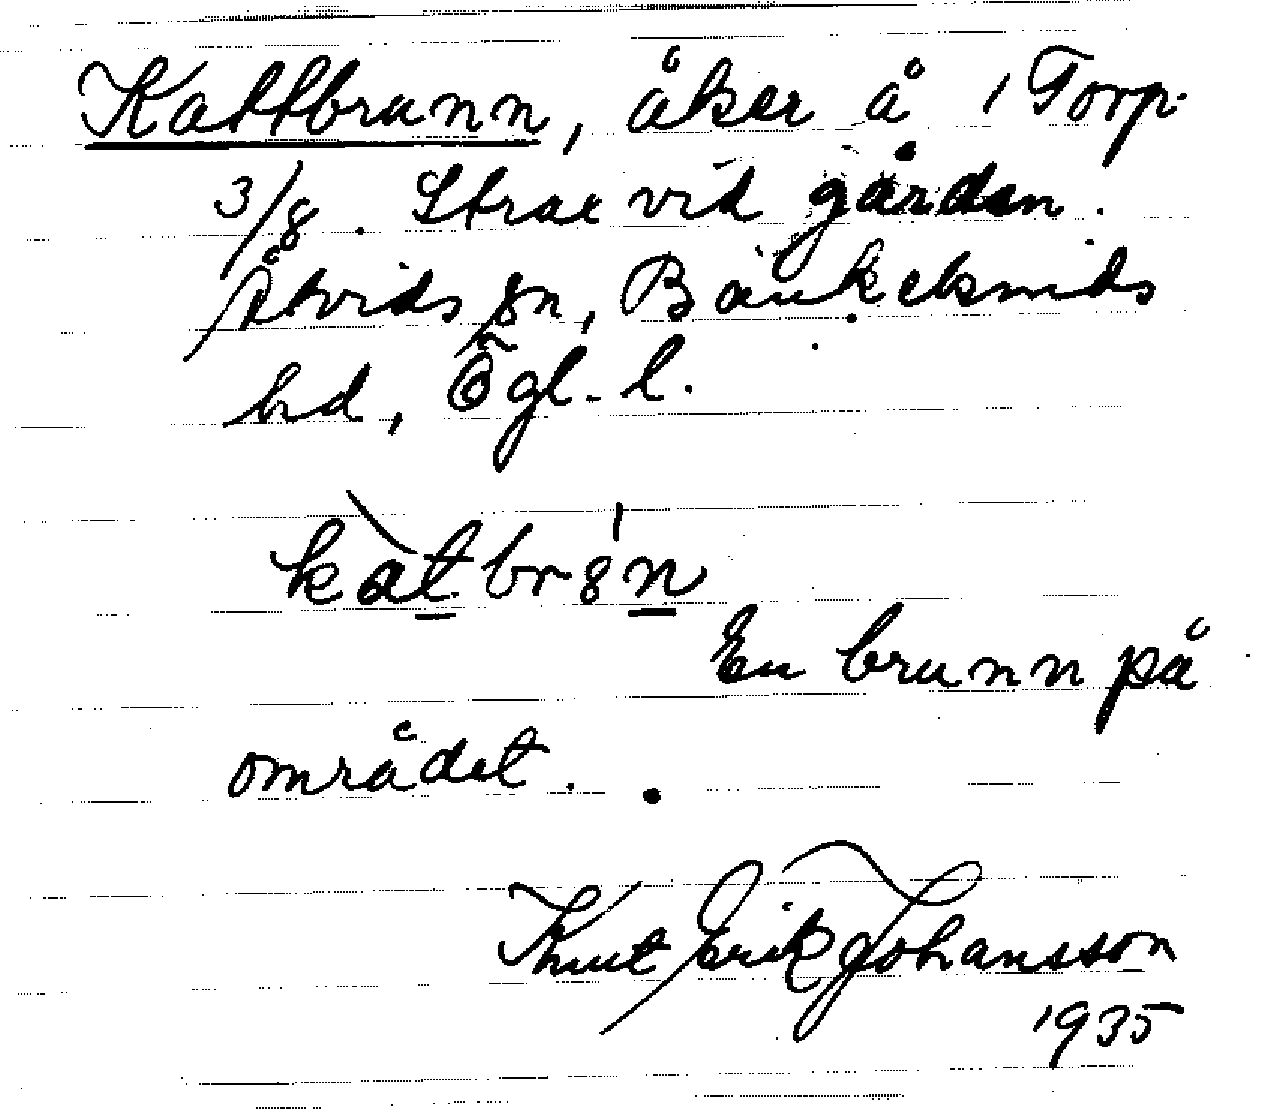 Kattbrunn, åker å 1 Torp
3/8. Strax vid gården.
Åtvids sn, Bankekinds
hd, Ögl. l.
kàtbrc̣n
En brunn på
området.
Knut Erik Johansson
1935